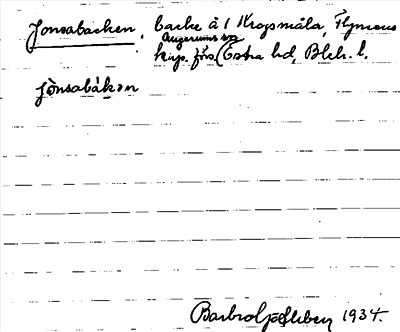 Jonsabacken, backe å 1 Kropsmåla, Flymens
Augerums sn
kap. förs. (Östra hd, Blek. l.
jònsabák̬an
Barbro 1934.